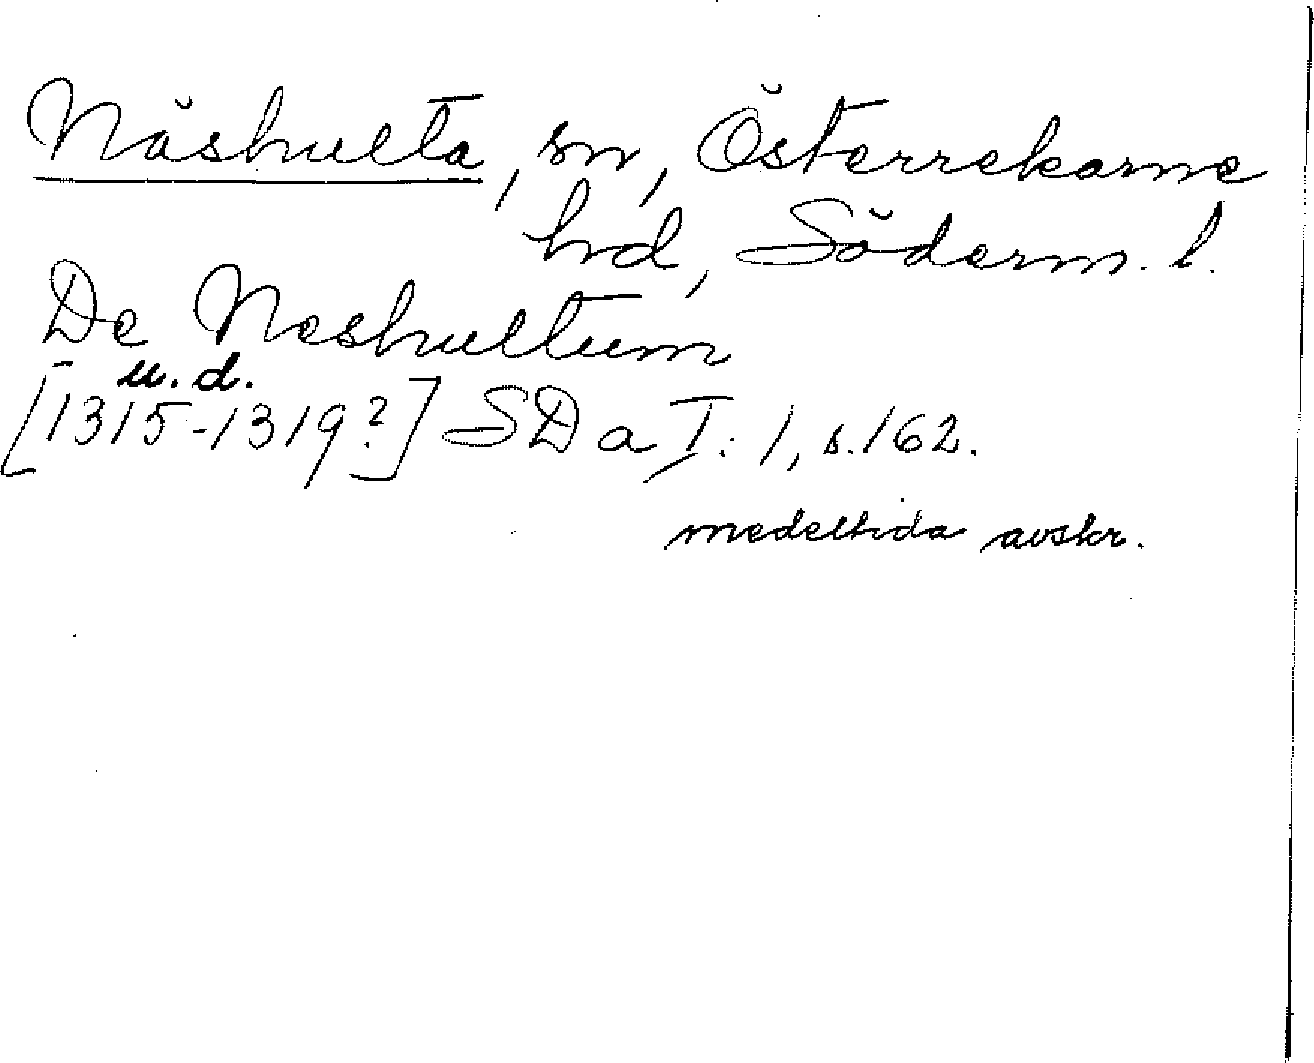 Näshulta, sn, Österrekarne
hd, Söderm. l.
De Neshultum
u. d.
[1315-1319?] SD a I: 1, s. 162.
medeltida avskr.